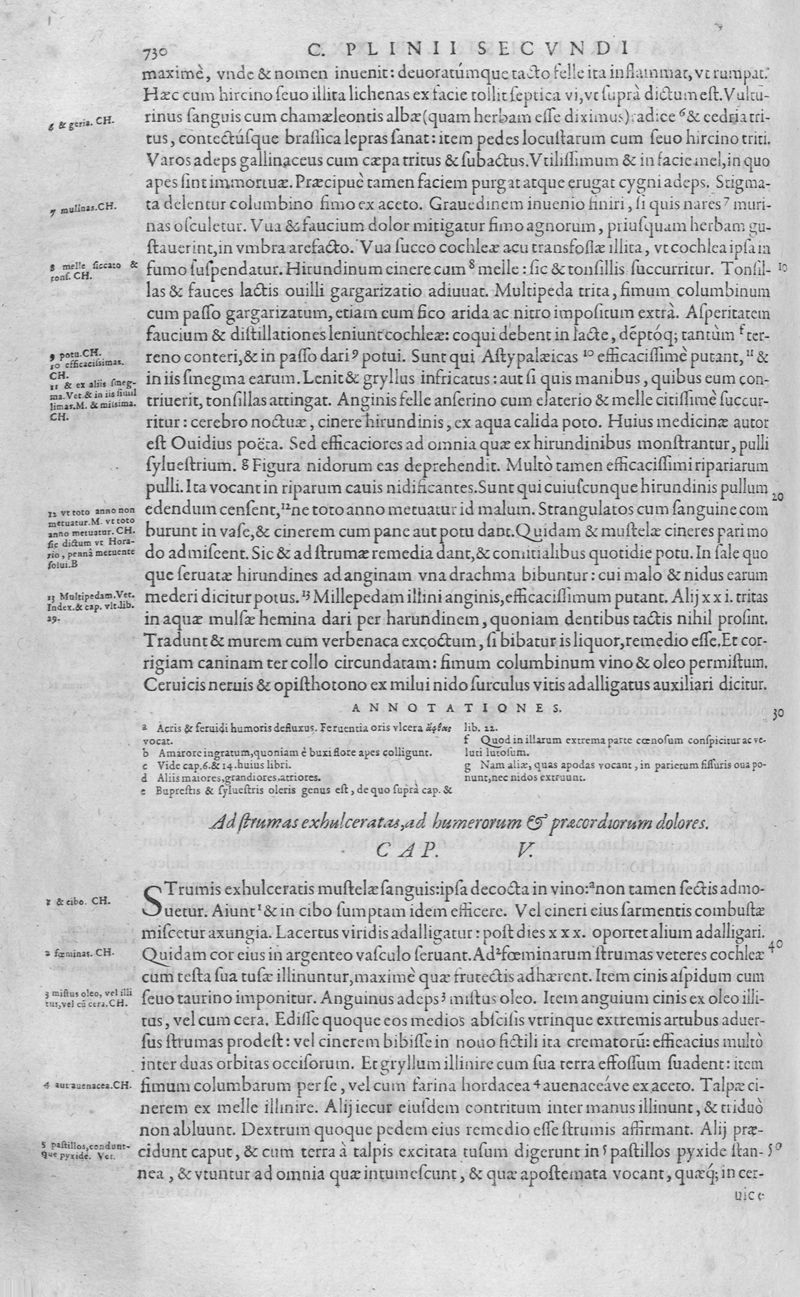 730
C. PLINII SECVNDI
maximè, vnde & nomen inuenit: deuoratúmque tacto felle ita inflammat, vt rumpat.
Hæc cum hircino ſeuo illita lichenas ex facie tollit ſeptica vi, vt ſuprà dictum eſt. Vultu-
rinus ſanguis cum chamæleontis albæ (quam herbam eſſe diximus) adice ⁶ & cedria tri-
tus, contectúſque braſſica lepras ſanat: item pedes locuſtarum cum ſeuo hircino triti.
Varos adeps gallinaceus cum cæpa tritus & ſubactus. Vtiliſſimum & in facie mel, in quo
apes ſint immortuæ. Præcipuè tamen faciem purgat atque erugat cygni adeps. Stigma-
ta delentur columbino fimo ex aceto. Grauedinem inuenio finiri, ſi quis nares ⁷ muri-
nas oſculetur. Vua & faucium dolor mitigatur fimo agnorum, priuſquam herbam gu-
ſtauerint, in vmbra arefacto. Vua ſucco cochleæ acu transfoſſæ illita, vt cochlea ipſa in
fumo ſuſpendatur. Hirundinum cinere cum ⁸ melle: ſic & tonſillis ſuccurritur. Tonſil-
10
las & fauces lactis ouilli gargarizatio adiuuat. Multipeda trita, fimum columbinum
cum paſſo gargarizatum, etiam cum fico arida ac nitro impoſitum extrà. Aſperitatem
faucium & diſtillationes leniunt cochleæ: coqui debent in lacte, démptóq; tantùm ᶠ ter-
reno conteri, & in paſſo dari ⁹ potui. Sunt qui Aſtypalæicas ¹⁰ efficaciſſimè putant, ¹¹ &
in iis ſmegma earum. Lenit & gryllus infricatus: aut ſi quis manibus, quibus eum con-
triuerit, tonſillas attingat. Anginis felle anſerino cum elaterio & melle citiſſimè ſuccur-
ritur: cerebro noctuæ, cinere hirundinis, ex aqua calida poto. Huius medicinæ autor
eſt Ouidius poëta. Sed efficaciores ad omnia quæ ex hirundinibus monſtrantur, pulli
ſylueſtrium. ᵍ Figura nidorum eas deprehendit. Multò tamen efficaciſſimi ripariarum
pulli. Ita vocant in riparum cauis nidificantes. Sunt qui cuiuſcunque hirundinis pullum
20
edendum cenſent, ¹² ne toto anno metuatur id malum. Strangulatos cum ſanguine com
burunt in vaſe, & cinerem cum pane aut potu dant. Quidam & muſtelæ cineres pari mo
do admiſcent. Sic & ad ſtrumæ remedia dant, & comitialibus quotidie potu. In ſale quo
que ſeruatæ hirundines ad anginam vna drachma bibuntur: cui malo & nidus earum
mederi dicitur potus. ¹³ Millepedam illini anginis, efficaciſſimum putant. Alij xxi. tritas
in aquæ mulſæ hemina dari per harundinem, quoniam dentibus tactis nihil proſint.
Tradunt & murem cum verbenaca excoctum, ſi bibatur is liquor, remedio eſſe. Et cor-
rigiam caninam ter collo circundatam: fimum columbinum vino & oleo permiſtum.
Ceruicis neruis & opiſthotono ex milui nido ſurculus vitis adalligatus auxiliari dicitur.
6 & geria. CH.
7 mulinas. CH.
8 melle ſiccato &
tonſ. CH.
9 potu. CH.
10 efficaciſſimas.
CH.
11 & ex aliis ſmeg-
ma. Vet. & in iis ſimul
limas. M. & miiſsima.
CH.
12 vt toto anno non
metuatur. M. vt toto
anno metuatur. CH.
ſic dictum vt Hora-
tio, pennâ metuente
ſolui. B
13 Multipedam. Vet.
Index. & cap. vlt. lib.
29.
ANNOTATIONES.
30
a Acris & feruidi humoris defluxus. Feruentia oris vlcera ἄφθας
vocat.
b Amarore ingratum, quoniam è buxi flore apes colligunt.
c Vide cap. 6. & 14. huius libri.
d Aliis maiores, grandiores, atriores.
e Bupreſtis & ſylueſtris oleris genus eſt, de quo ſuprà cap. &
lib. 22.
f Quod in illarum extrema parte cœnoſum conſpicitur ac ve-
luti lutoſum.
g Nam aliæ, quas apodas vocant, in parietum fiſſuris oua po-
nunt, nec nidos extruunt.
Ad ſtrumas exhulceratas, ad humerorum & præcordiorum dolores.
CAP. V.
STrumis exhulceratis muſtelæ ſanguis: ipſa decocta in vino: ᵃ non tamen ſectis admo-
uetur. Aiunt ¹ & in cibo ſumptam idem efficere. Vel cineri eius ſarmentis combuſtæ
miſcetur axungia. Lacertus viridis adalligatur: poſt dies xxx. oportet alium adalligari.
Quidam cor eius in argenteo vaſculo ſeruant. Ad ² fœminarum ſtrumas veteres cochleæ
40
cum teſta ſua tuſæ illinuntur, maximè quæ frutectis adhærent. Item cinis aſpidum cum
ſeuo taurino imponitur. Anguinus adeps ³ miſtus oleo. Item anguium cinis ex oleo illi-
tus, vel cum cera. Ediſſe quoque eos medios abſciſis vtrinque extremis artubus aduer-
ſus ſtrumas prodeſt: vel cinerem bibiſſe in nouo fictili ita crematorū: efficacius multò
inter duas orbitas occiſorum. Et gryllum illinire cum ſua terra effoſſum ſuadent: item
fimum columbarum per ſe, vel cum farina hordacea ⁴ auenaceáve ex aceto. Talpæ ci-
nerem ex melle illinire. Alij iecur eiuſdem contritum inter manus illinunt, & triduò
non abluunt. Dextrum quoque pedem eius remedio eſſe ſtrumis affirmant. Alij præ-
cidunt caput, & cum terra à talpis excitata tuſum digerunt in ⁵ paſtillos pyxide ſtan-
50
nea, & vtuntur ad omnia quæ intumeſcunt, & quæ apoſtemata vocant, quæq; in cer-
uice
1 & cibo. CH.
2 fœminas. CH.
3 miſtus oleo, vel illi
tus, vel cū cera. CH.
4 aut auenacea. CH.
5 paſtillos, condunt-
que pyxide. Vet.